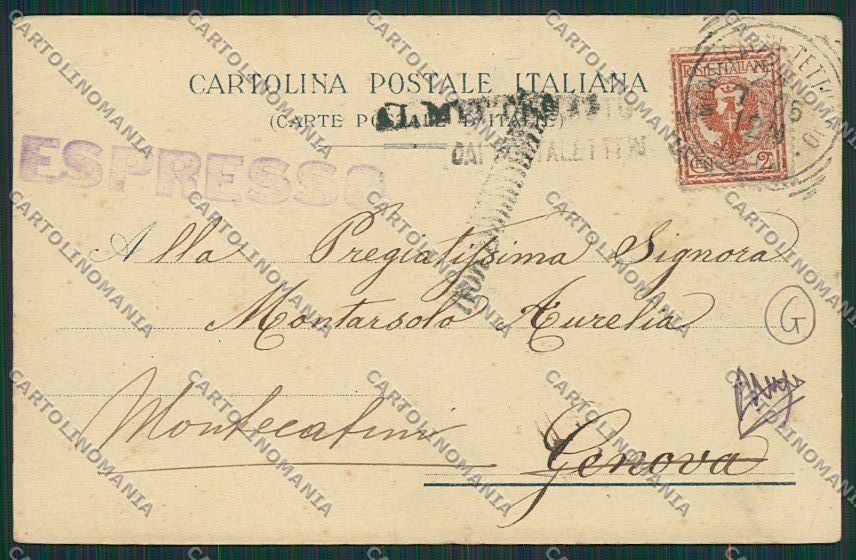 CARTOLINA POSTALE ITALIANA
(CARTE POSTALE D'ITALIE)
POSTE ITALIANE
CENT. 2
ESPRESSO
DAI PORTALETTERE
Alla Pregiatissima Signora
Montarsolo Aurelia
Montecatini
Genova
G
CARTOLINOMANIA